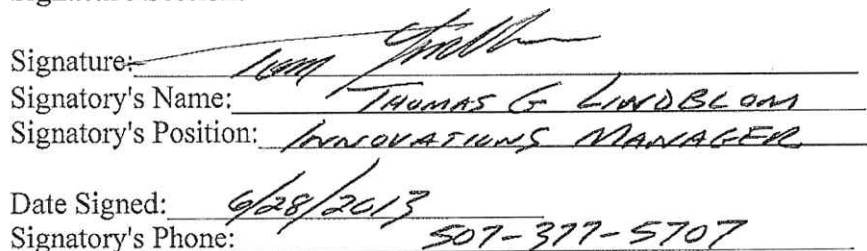 Signature: Tom
Signatory's Name: THOMAS G LINDBLOM
Signatory's Position: INNOVATIONS MANAGER
Date Signed: 6/28/2013
Signatory's Phone: 507-377-5707